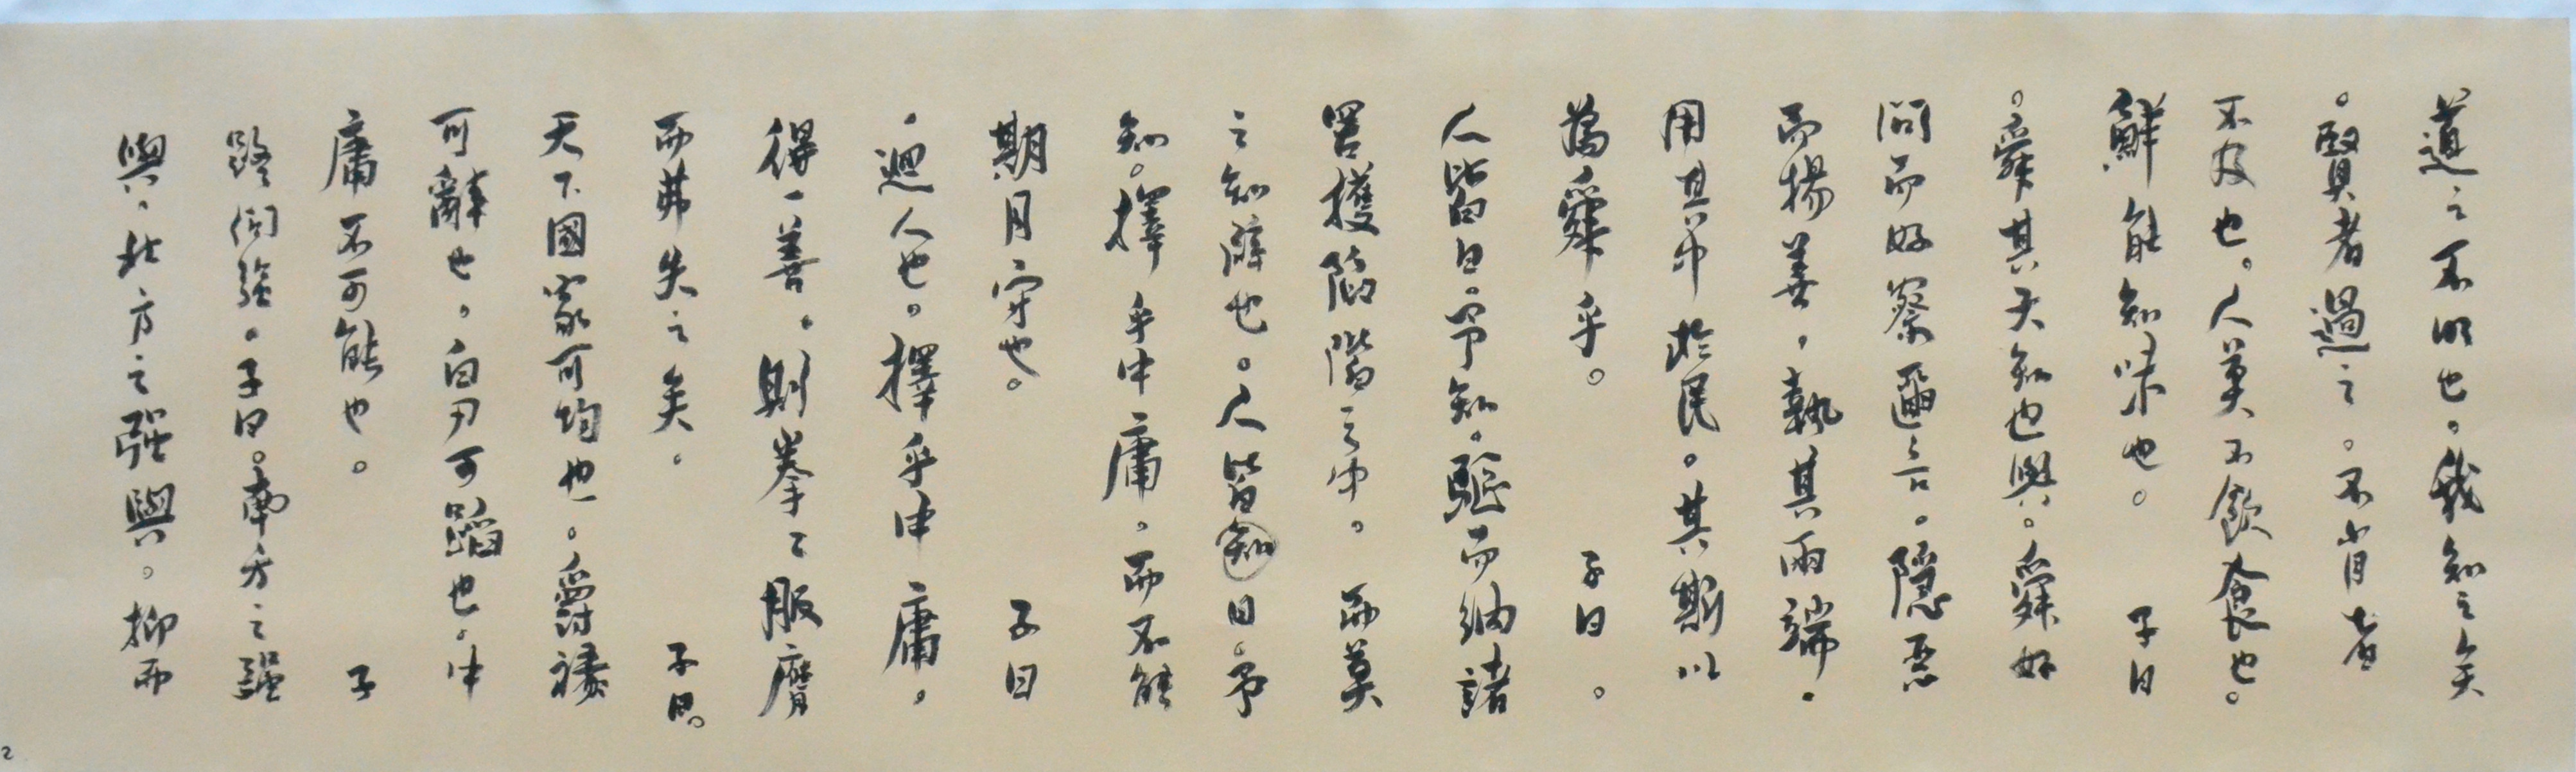 道之不明也。我知之矣
。賢者過之。不肖者
不及也。人莫不飲食也。
鮮能知味也。子曰
。舜其大知也與。舜好
問而好察邇言。隱惡
而揚善，執其兩端。
用其中於民。其斯以
為舜乎。子曰。
人皆曰。予知。驅而納諸
罟擭陷階之中。而莫
之知辟也。人皆知曰。予
知。擇乎中庸。而不能
期月守也。子曰
。迴人也。擇乎中庸，
得一善，則拳々服膺
而弗失之矣。子曰。
天下國家可均也。爵祿
可辭也。白刃可蹈也。中
庸不可能也。子
路問強。子曰。南方之強
與，北方之強與。抑而
2